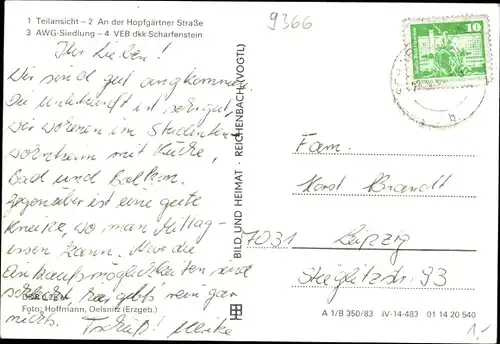 1 Teilansicht – 2 An der Hopfgärtner Straße
3 AWG-Siedlung – 4 VEB dkk Scharfenstein
9366
10
Ihr Lieben!
Wir sind gut angekommen.
Die Unterkunft ist sehr gut,
wir wohnen im Studenten-
wohnheim mit Küche,
Bad und Balkon.
Gegenüber ist eine gute
Kneipe, wo man Mittag-
essen kann. Nur die
Einkaufsmöglichkeiten sind
schlecht, hier gibt's rein gar
nichts. Tschüß! Ulrike
Foto: Hoffmann, Oelsnitz (Erzgeb.)
BILD UND HEIMAT · REICHENBACH (VOGTL)
Fam.
Horst Brandt
7031 Leipzig
Stieglitzstr. 93
A 1/B 350/83 IV-14-483 01 14 20 540
1,-